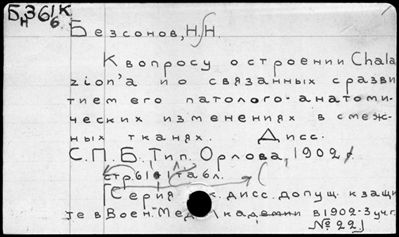 Бн 361/6 к
Безсонов, Н. Н.
К вопросу о строении Chala
zion'а и о связанных с разви
тием его патолого-анатоми-
ческих изменениях в смеж-
ных тканях. Дисс.
С.П.Б. Тип. Орлова, 1902
стр. 61 + 1 табл.
(Серия дисс. допущ. к защи
те в Воен. Мед. Академии в 1902-3 уч. г.
№ 22)